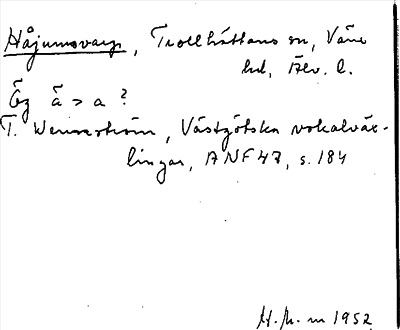 Håjumsvarp, Trollhättans sn, Väne
hd, Älv. l.
Äg å > a ?
T. Wennström, Västgötska vokalväx-
lingar, ANF 47, s. 184
H. M-m 1952